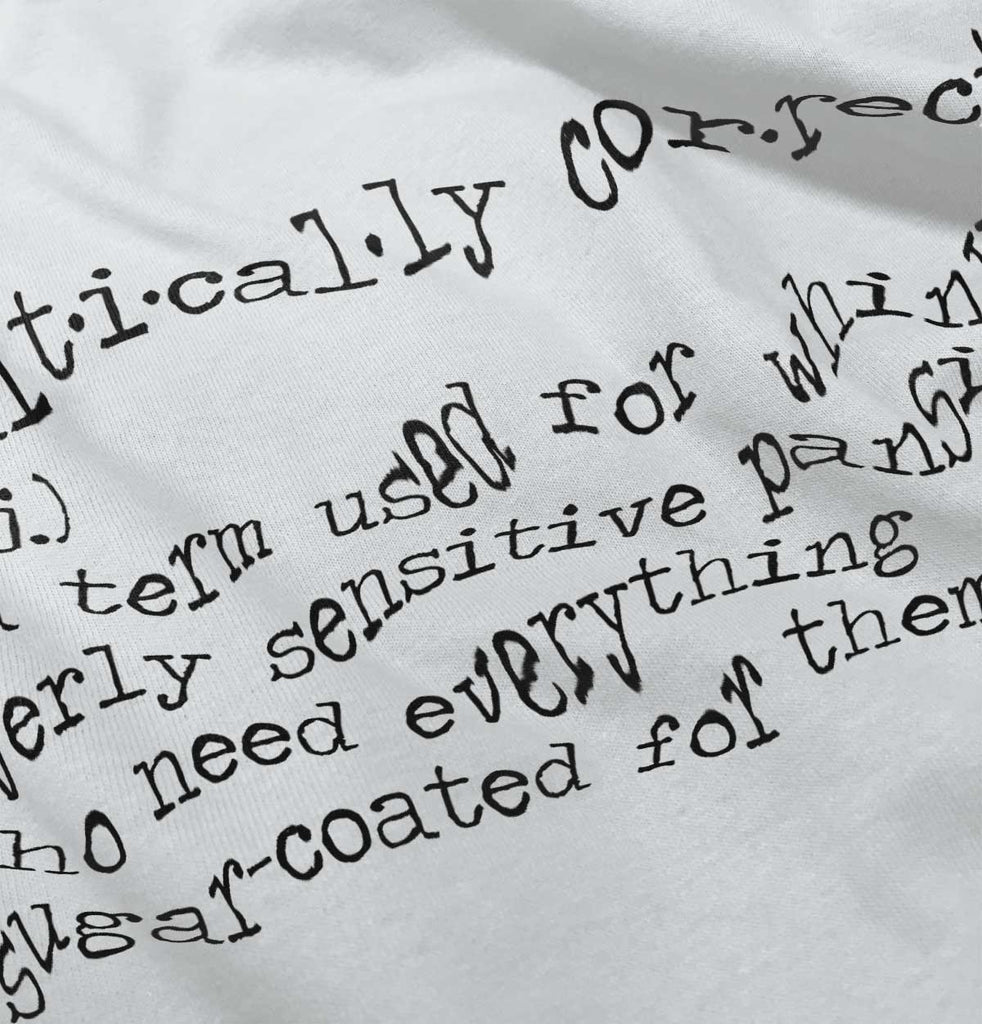 lt·i·cal·ly cor·rect
i.)
term used for whin
verly sensitive pansi
ho need everything
sugar-coated for them